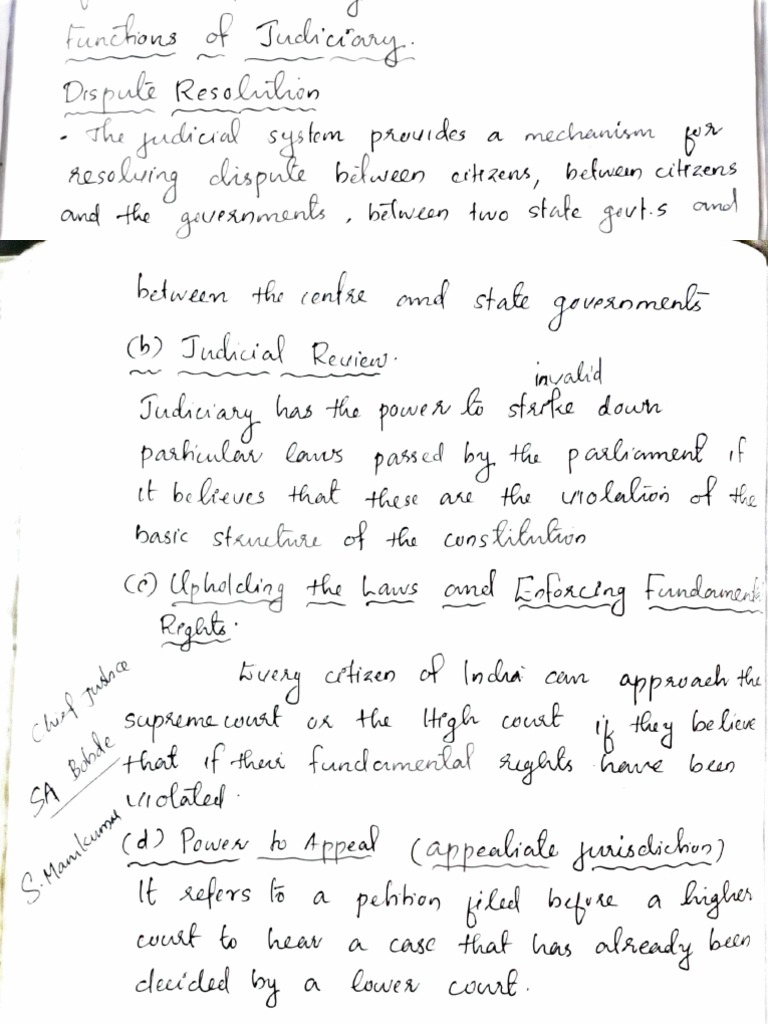 Functions of Judiciary.
Dispute Resolution
• The judicial system provides a mechanism for
resolving dispute between citizens, between citizens
and the governments, between two state govt.s and
between the centre and state governments
(b) Judicial Review.
invalid
Judiciary has the power to strike down
particular laws passed by the parliament if
it believes that these are the violation of the
basic structure of the constitution
(c) Upholding the Laws and Enforcing Fundamental
Rights.
Every citizen of India can approach the
supreme court or the High court if they believe
that if their fundamental rights have been
violated.
Chief Justice
SA Bobde
(d) Power to Appeal (appealiate jurisdiction)
It refers to a petition filed before a higher
court to hear a case that has already been
decided by a lower court.